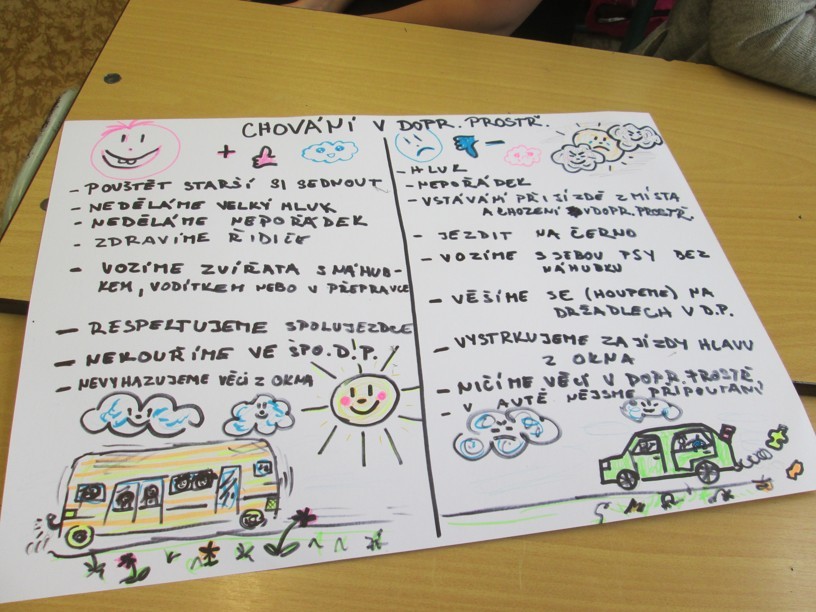 CHOVÁNÍ V DOPR. PROSTŘ.
+
- POUŠTĚT STARŠÍ SI SEDNOUT
- NEDĚLÁME VELKÝ HLUK
- NEDĚLÁME NEPOŘÁDEK
- ZDRAVÍME ŘIDIČE
- VOZÍME ZVÍŘATA S NÁHUB-
KEM, VODÍTKEM NEBO V PŘEPRAVCE
- RESPEKTUJEME SPOLUJEZDCE
- NEKOUŘÍME VE D.P.
- NEVYHAZUJEME VĚCI Z OKNA
-
- HLUK
- NEPOŘÁDEK
- VSTÁVÁNÍ PŘI JÍZDĚ Z MÍSTA
A CHOZENÍ V DOPR. PROSTŘ.
- JEZDIT NA ČERNO
- VOZÍME S SEBOU PSY BEZ
NÁHUBKU
- VĚŠÍME SE (HOUPEME) NA
DRŽADLECH V D.P.
- VYSTRKUJEME ZA JÍZDY HLAVU
Z OKNA
- NIČÍME VĚCI V DOPR. PROSTŘ.
- V AUTĚ NEJSME PŘIPOUTANÍ